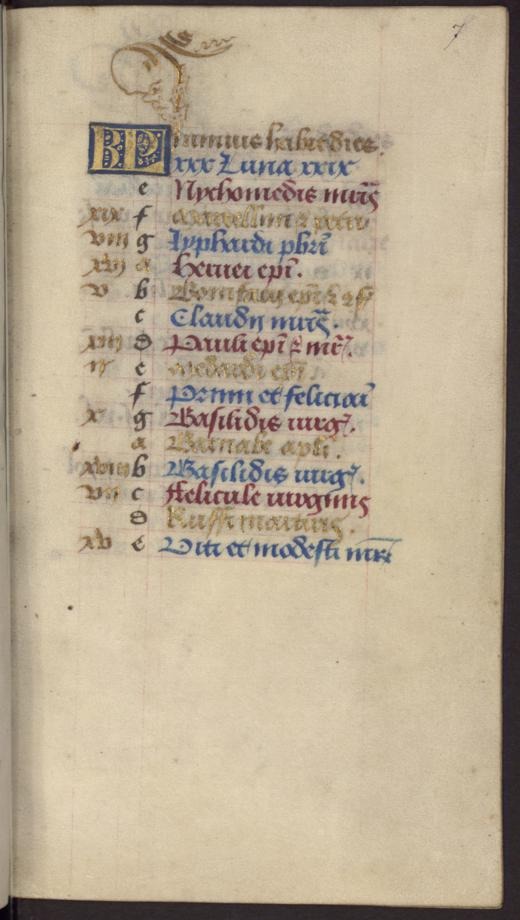 7
KL Iunius habet dies
xxx Luna xxix
e Nychomedis mr̄s
xix f Marcellini & petri
viii g Lyphardi pbri
xvi a
v b Bonifacii epi &
c Claudii mr̄s.
xiii d Pauli epi & mr̄.
ii e Medardi epi
f Primi et feliciani
x g Basilidis virg.
a Barnabe apli.
xviii b Basilidis virg.
vii c Felicule virginis
d Ruffi martiris.
xv e Viti et modesti mr̄